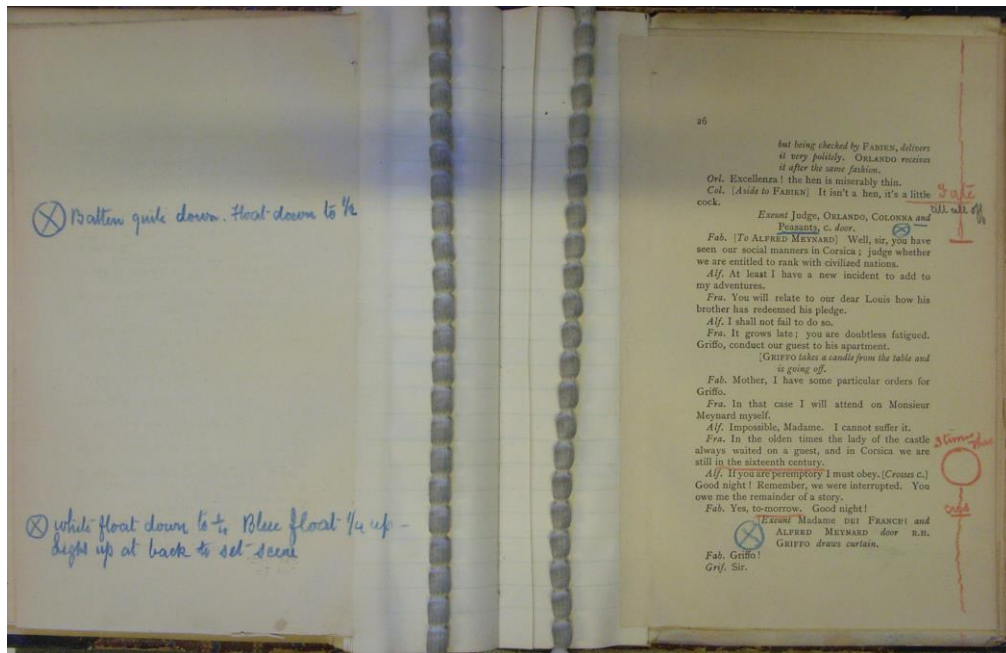 Batten quite down. Float down to 1/2
white float down to 1/4 Blue float 1/4 up -
Light up at back to set scene
26
but being checked by FABIEN, delivers
it very politely. ORLANDO receives
it after the same fashion.
Orl. Excellenza! the hen is miserably thin.
Col. [Aside to FABIEN] It isn't a hen, it's a little
cock.
Exeunt Judge, ORLANDO, COLONNA and
Peasants, C. door.
all off
Fab. [To ALFRED MEYNARD] Well, sir, you have
seen our social manners in Corsica; judge whether
we are entitled to rank with civilized nations.
Alf. At least I have a new incident to add to
my adventures.
Fra. You will relate to our dear Louis how his
brother has redeemed his pledge.
Alf. I shall not fail to do so.
Fra. It grows late; you are doubtless fatigued.
Griffo, conduct our guest to his apartment.
[GRIFFO takes a candle from the table and
is going off.
Fab. Mother, I have some particular orders for
Griffo.
Fra. In that case I will attend on Monsieur
Meynard myself.
Alf. Impossible, Madame. I cannot suffer it.
Fra. In the olden times the lady of the castle
always waited on a guest, and in Corsica we are
still in the sixteenth century.
Alf. If you are peremptory I must obey. [Crosses C.]
Good night! Remember, we were interrupted. You
owe me the remainder of a story.
Fab. Yes, to-morrow. Good night!
[Exeunt Madame DEI FRANCHI and
ALFRED MEYNARD door R.H.
GRIFFO draws curtain.
Fab. Griffo!
Grif. Sir.